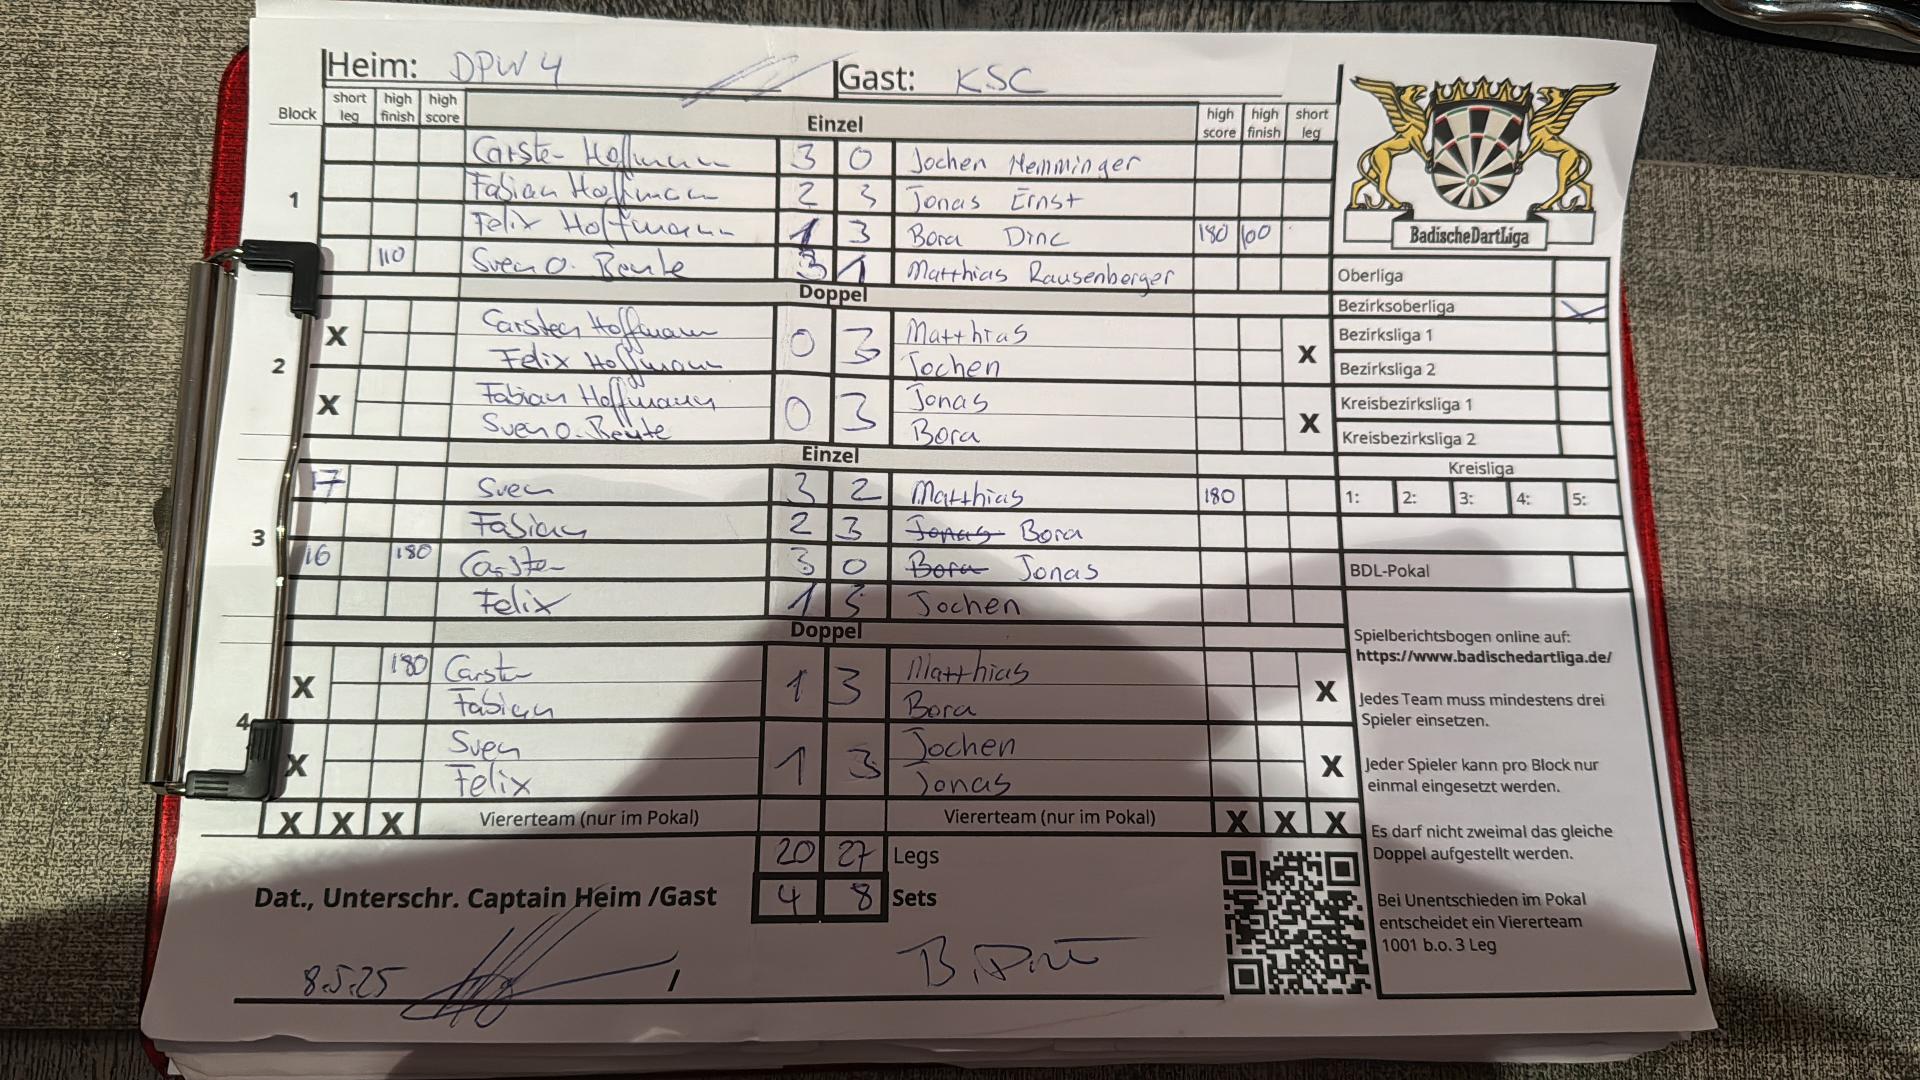 Heim: DPW 4 Gast: KSC
Block short leg high finish high score Einzel high score high finish short leg
1
Carsten Hoffmann 3 0 Jochen Hemminger
Fabian Hoffmann 2 3 Jonas Ernst
Felix Hoffmann 1 3 Bora Dinc 180 100
110 Sven O. Beute 3 1 Matthias Rausenberger
Doppel
2
X Carsten Hoffmann 0 3 Matthias X
Felix Hoffmann Jochen
X Fabian Hoffmann 0 3 Jonas X
Sven O. Beute Bora
Einzel
3
17 Sven 3 2 Matthias 180
Fabian 2 3 Jonas Bora
16 180 Carsten 3 0 Bora Jonas
Felix 1 3 Jochen
Doppel
4
X 180 Carsten 1 3 Matthias X
Fabian Bora
X Sven 1 3 Jochen X
Felix Jonas
X X X Viererteam (nur im Pokal) Viererteam (nur im Pokal) X X X
20 27 Legs
Dat., Unterschr. Captain Heim /Gast 4 8 Sets
8.5.25 /
BadischeDartLiga
Oberliga
Bezirksoberliga
Bezirksliga 1
Bezirksliga 2
Kreisbezirksliga 1
Kreisbezirksliga 2
Kreisliga
1: 2: 3: 4: 5:
BDL-Pokal
Spielberichtsbogen online auf:
https://www.badischedartliga.de/
Jedes Team muss mindestens drei
Spieler einsetzen.
Jeder Spieler kann pro Block nur
einmal eingesetzt werden.
Es darf nicht zweimal das gleiche
Doppel aufgestellt werden.
Bei Unentschieden im Pokal
entscheidet ein Viererteam
1001 b.o. 3 Leg